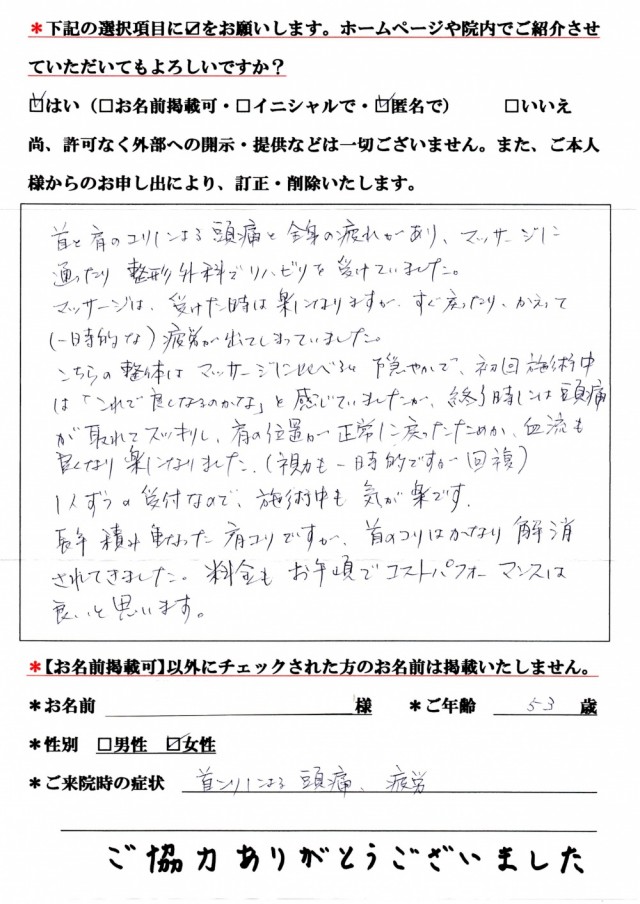 *下記の選択項目に☑をお願いします。ホームページや院内でご紹介させ
ていただいてもよろしいですか？
☑はい（□お名前掲載可・□イニシャルで・☑匿名で）　□いいえ
尚、許可なく外部への開示・提供などは一切ございません。また、ご本人
様からのお申し出により、訂正・削除いたします。
首と肩のコリによる頭痛と全身の疲れがあり、マッサージに
通ったり整形外科でリハビリを受けていました。
マッサージは、受けた時は楽になりますが、すぐ戻ったり、かえって
(一時的な)疲労が出てしまっていました。
こちらの整体はマッサージに比べると穏やかで、初回施術中
は「これで良くなるのかな」と感じていましたが、終了時には頭痛
が取れてスッキリし、肩の位置が正常に戻ったためか、血流も
良くなり楽になりました。(視力も一時的ですが回複)
1人ずつの受付なので、施術中も気が楽です。
長年積み重なった肩コリですが、首のコリはかなり解消
されてきました。料金もお手頃でコストパフォーマンスは
良いと思います。
*【お名前掲載可】以外にチェックされた方のお名前は掲載いたしません。
*お名前　様　*ご年齢　53　歳
*性別　□男性　☑女性
*ご来院時の症状　首コリによる頭痛、疲労
ご協力ありがとうございました